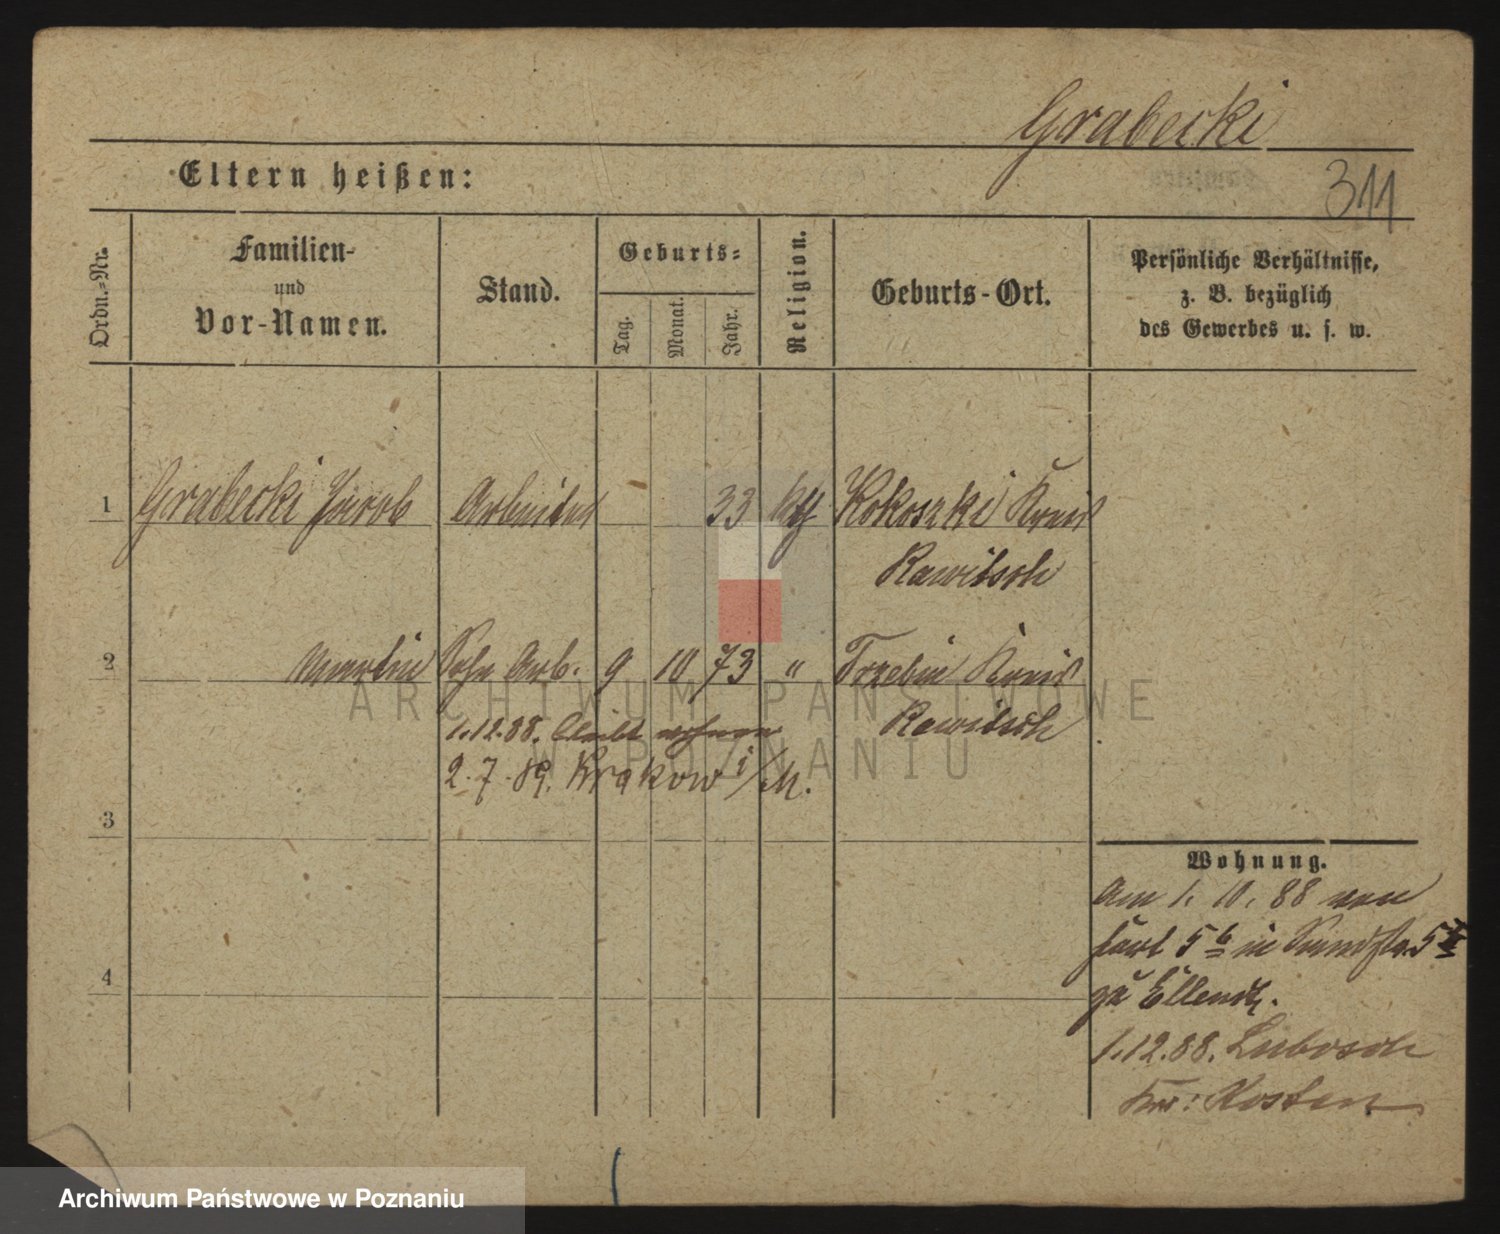 Grabecki
Eltern heißen:
311
Ordn.-Nr.
Familien-
und
Vor-Namen.
Stand.
Geburts-
Tag.
Monat.
Jahr.
Religion.
Geburts-Ort.
Persönliche Verhältnisse,
z. B. bezüglich
des Gewerbes u. s. w.
1 Grabecki Jacob Arbeiter 33 kth Kokoszki Kreis
Rawitsch
2 Martin Sohn Arb. 9 10 73 " Trzebin Kreis
Rawitsch
1.12.88. bleibt wohnen
2.7.89. Krakow i/M.
3
Wohnung.
Am 1. 10. 88 von
hart 5 b in 5
zu Ellendt.
4
1.12.88. Lubosch
Krs: Kosten
ARCHIWUM PAŃSTWOWE
W POZNANIU
Archiwum Państwowe w Poznaniu